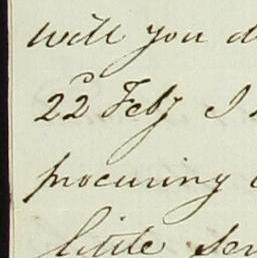 will you d
22d Feby I
procuring
little ser